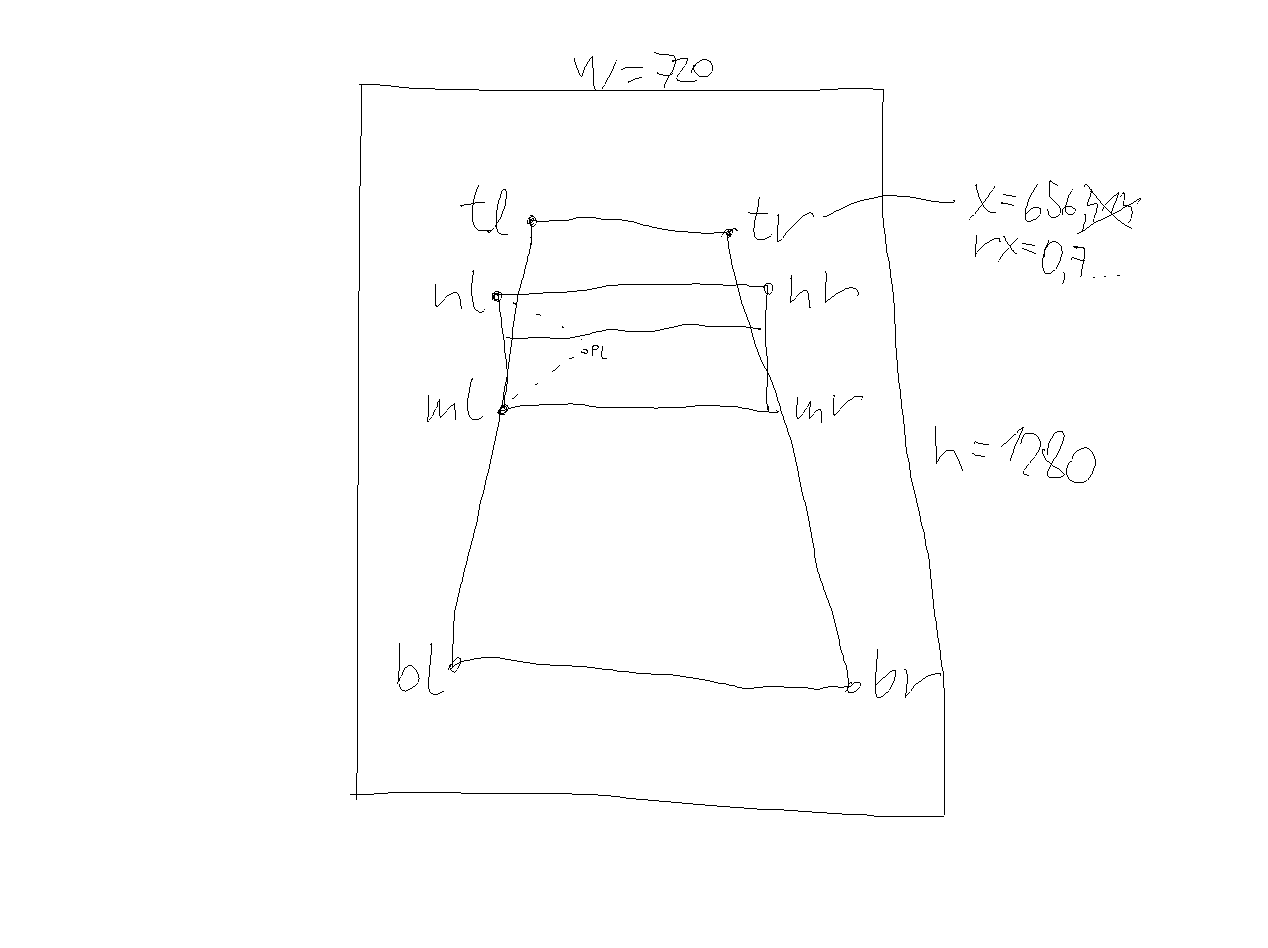 W=720
tl
tr
x=656
rx=0,7...
nl
nr
PL
ml
mr
h=1280
bl
br